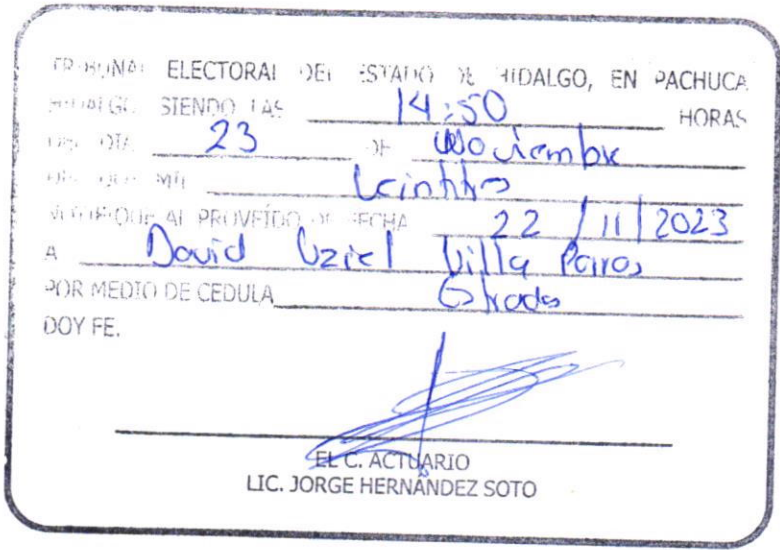 TRIBUNAL ELECTORAL DEL ESTADO DE HIDALGO, EN PACHUCA
HIDALGO SIENDO LAS 14:50 HORAS
DEL DÍA 23 DE Noviembre
DEL DOS MIL Veintitres
NOTIFIQUE AL PROVEÍDO DE FECHA 22 / 11 / 2023
A David Uziel Villa
POR MEDIO DE CEDULA Estrados
DOY FE.
EL C. ACTUARIO
LIC. JORGE HERNÁNDEZ SOTO